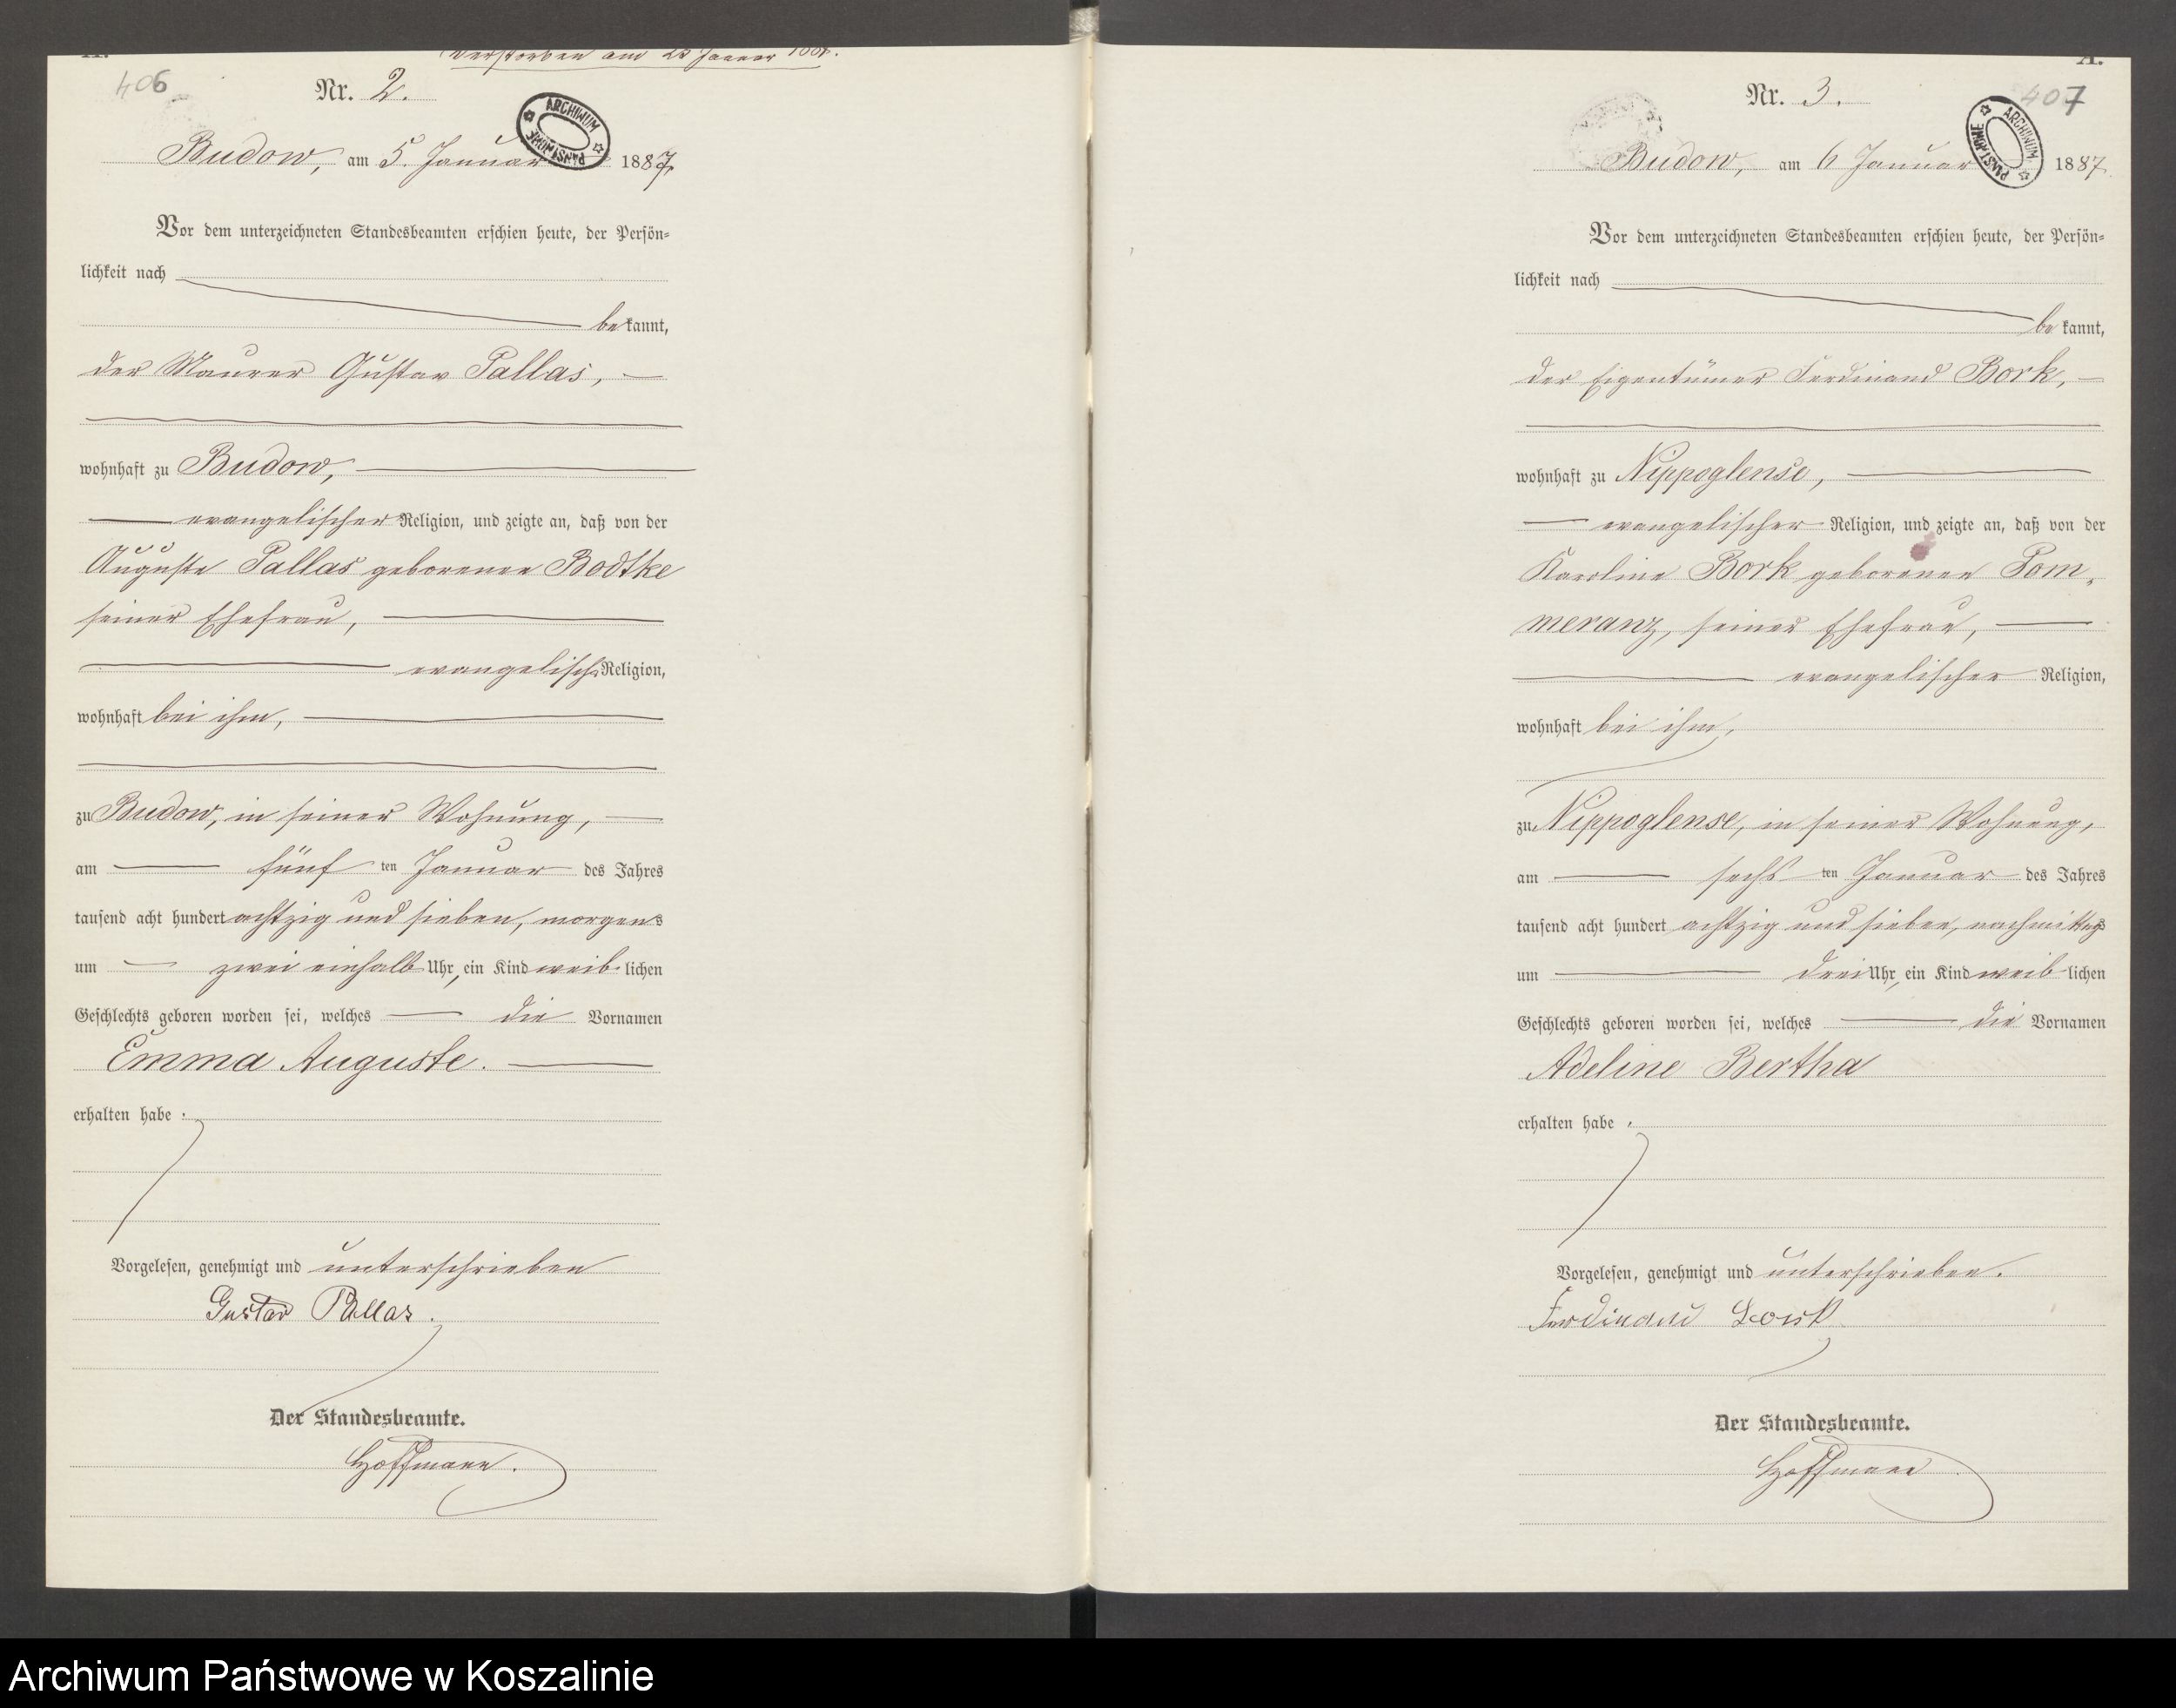 A.
Verstorben am 23 Januar
406
Nr. 2.
ARCHIWUM PAŃSTWOWE
Budow, am 5. Januar 1887
Vor dem unterzeichneten Standesbeamten erschien heute, der Persön-
lichkeit nach
bekannt,
der Maurer Gustav Pallas,
wohnhaft zu Budow,
evangelischer Religion, und zeigte an, daß von der
Auguste Pallas geborenen Bodtke
seiner Ehefrau,
evangelischer Religion,
wohnhaft bei ihm,
zu Budow, in seiner Wohnung,
am fünf ten Januar des Jahres
tausend acht hundert achtzig und sieben, morgens
um zwei einhalb Uhr, ein Kind weiblichen
Geschlechts geboren worden sei, welches die Vornamen
Emma Auguste.
erhalten habe.
Vorgelesen, genehmigt und unterschrieben
Gustav Pallas.
Der Standesbeamte.
Hoffmann.
A.
407
Nr. 3.
ARCHIWUM PAŃSTWOWE
Budow, am 6 Januar 1887.
Vor dem unterzeichneten Standesbeamten erschien heute, der Persön-
lichkeit nach
bekannt,
der Eigentümer Ferdinand Bork,
wohnhaft zu Nippoglense,
evangelischer Religion, und zeigte an, daß von der
Karoline Bork geborenen Pom-
meranz, seiner Ehefrau,
evangelischer Religion,
wohnhaft bei ihm,
zu Nippoglense, in seiner Wohnung,
am sechs ten Januar des Jahres
tausend acht hundert achtzig und sieben, nachmittags
um drei Uhr, ein Kind weiblichen
Geschlechts geboren worden sei, welches die Vornamen
Adeline Bertha
erhalten habe.
Vorgelesen, genehmigt und unterschrieben.
Ferdinand Bork
Der Standesbeamte.
Hoffmann
Archiwum Państwowe w Koszalinie